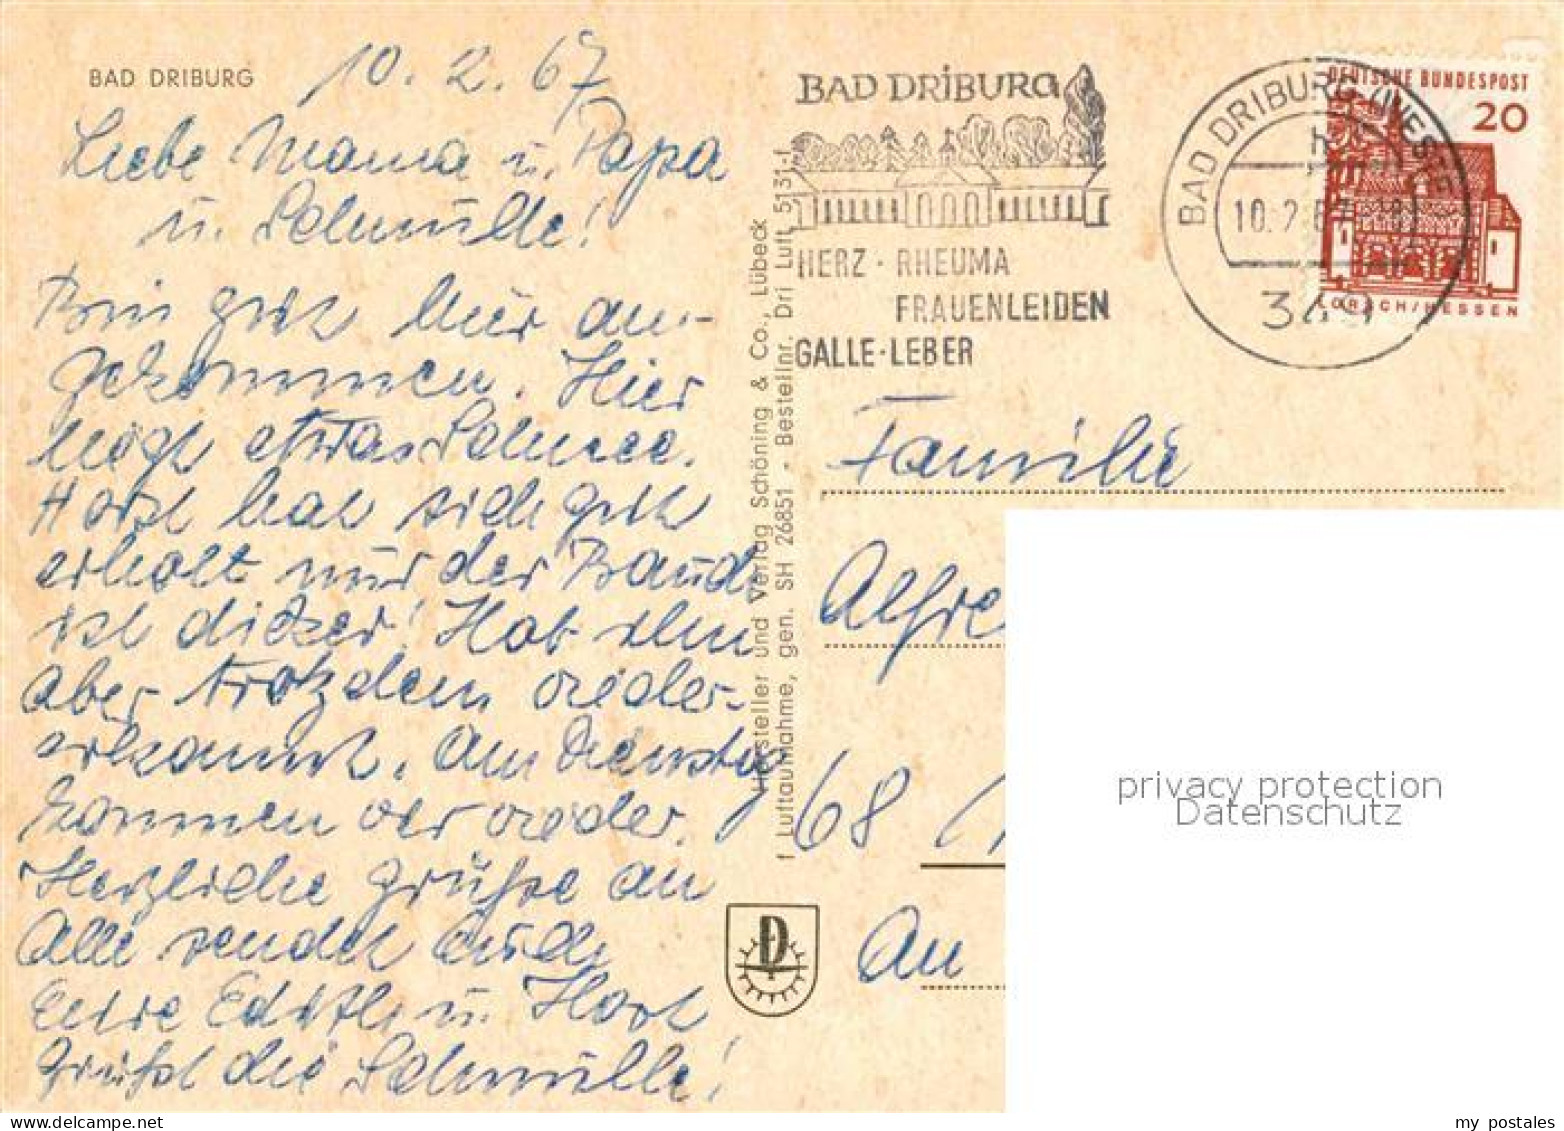 BAD DRIBURG
10. 2. 67
Liebe Mama u. Papa
u. Schnulle!
Bin gut hier an-
gekommen. Hier
liegt etwas Schnee.
Horst hat sich gut
erholt nur der Bauch
ist dicker! Hab ihn
aber trotzdem wieder-
erkannt. Am Dienstag
kommen wir wieder.
Herzliche Grüße an
Alle sendet Euch
Eure Edith u. Horst
Grüßt die Schnulle!
Hersteller und Verlag Schöning & Co., Lübeck
† Luftaufnahme, gen. SH 26851 - Bestellnr. Dri Luft 5131-I
D
BAD DRIBURG
HERZ · RHEUMA
FRAUENLEIDEN
GALLE · LEBER
BAD DRIBURG (WESTF
10. 2. 67
DEUTSCHE BUNDESPOST
20
LORSCH/HESSEN
Familie
Alfre
68
An
privacy protection
Datenschutz
my postales